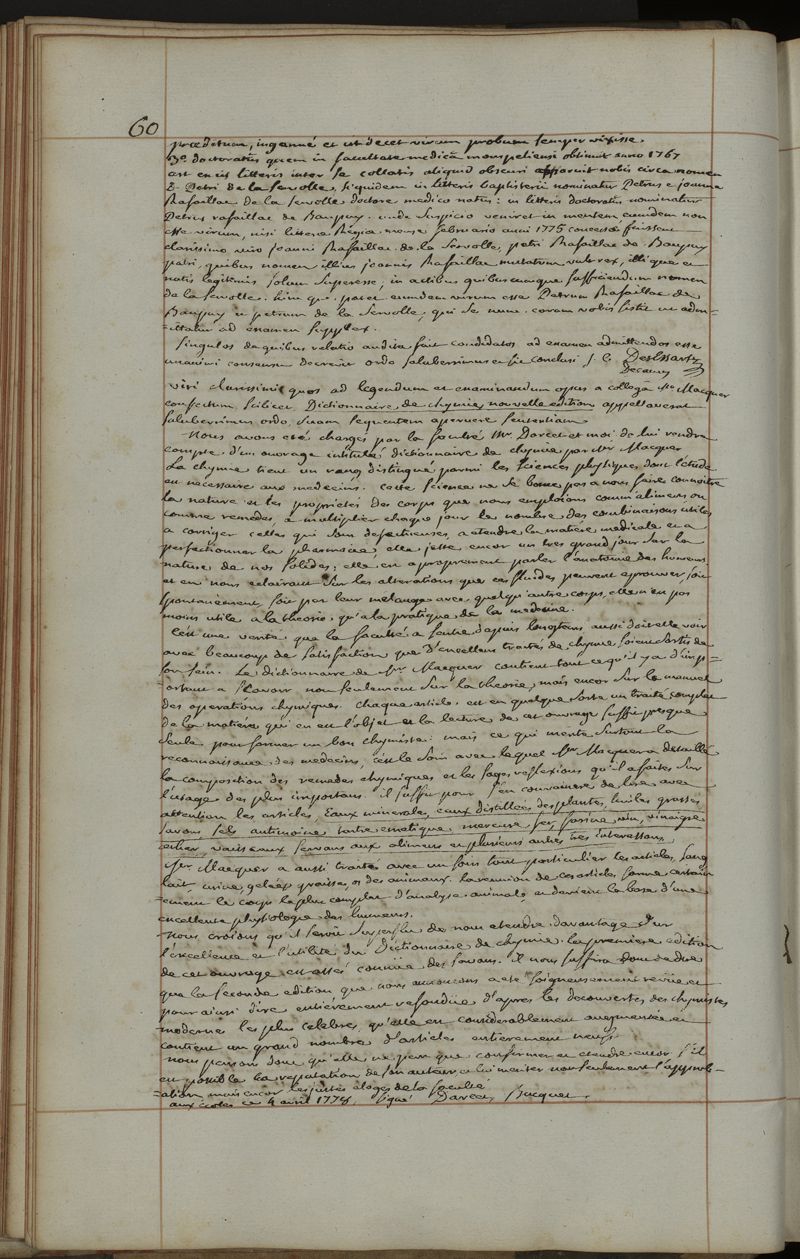 60
præditum, ingenué et ut decet virum probum semper vixisse.
3º. doctoratûs quem in facultate medicâ monspeliensi obtinuit anno 1767
ast en iis litteris inter se collatis aliquid obscuri apparuit nobis circa nomen
D. Petri de la Servolle, siquidem in litteris baptisterii nominatur Petrus e joanne
Rafaillac de la Servolle doctore medico natus: in litteris doctoratus nominatur
Petrus rafaillac de Baupuy. unde suspicio veniret in mentem eumdem non
esse virum, nisi litteræ Regiæ mense februario anni 1775 concessæ fuissent
clarissimo viro joanni Rafaillac de la Servolle, petri Rafaillac de Baupuy
patri, quibus nomen illius joannis Rafaillac mutatum vult rex, illique et
natis legitimis solum superesse, in actibus quibuscumque sufficiendum nomen
de la Servolle. hinc que patet eumdem virum esse Petrum Rafaillac de
Baupuy et petrum de la Servolle, qui se nunc coram vobis sistit ut adm=
=ittatur ad examen supplex.
Singulos de quibus relatio audita fuit candidatos ad examen admittendos esse
unanimi consensu decrevit ordo saluberrimus et sic conclusi J. C. DesEssartz
Decanus
Viri clarissimi quos ad legendum et examinandum opus a collega Mr Macquer
confectum, scilicet Dictionnaire de chymie, nouvelle edition, appellaverat
saluberrimus ordo, suam sequentem aperuere sententiam
Nous avons eté chargés par la faculté Mr. Darcet et moi de lui rendre
compte d'un ouvrage intitulé dictionnaire de chymie par Mr Macquer
La chymie tient un rang distingué parmi les sciences physiques dont l'étude
est nécessaire aux medecins. cette science ne se borne pas a nous faire connoître
la nature et les proprietés des corps que nous emploions comme alimens ou
comme remedes, a multiplier chaque jour le nombre des combinaisons utiles,
a corriger celles qui sont defectueuses, a etendre la matiere medicale et a
perfectionner la pharmacie, elle jette encor un tres grand jour sur la
nature de nos solides; elle est a proprement parler l'anatomie des humeurs.
et en nous eclairant sur les alterations que ces fluides peuvent eprouver, soit
spontanement, soit par leur melange avec quelqu'autre corps, elle n'est pas
moins utile a la theorie, qu'a la pratique de la medecine.
C'est une verité que la faculté a sentie depuis longtems aussi doit elle voir
avec beaucoup de satisfaction que d'excellens traités de chymie soient sortis de
son sein. Le dictionnaire de Mr Macquer contient tout ce qu'il y a d'imp=
=ortant a sçavoir non seulement sur la theorie, mais encor sur le manuel
des operations chymiques. chaque article, est en quelque sorte un traité complet
de la matiere qui en est l'objet et la lecture de cet ouvrage suffit presque
seule pour former un bon chymiste. mais ce qui merite surtout la
reconnoissance des medecins, c'est le soin avec lequel Mr Macquer a detaillé
la composition des remedes chymiques et les sages reflexions qu'il a faites sur
l'usage des plus importans. il suffit pour s'en convaincre de lire avec
attention les articles, Eaux minerales, eaux distillées des plantes, huiles grasses
savons, sels, antimoine, tartre emetique, mercure, fer, farine, vin, vinaigre
ether, vaisseaux servans aux alimens et plusieurs autres tres interessans.
Mr Macquer a aussi traité avec un soin tout particulier les articles, sang
lait, urine, gelées, graisse, et des animaux. la reunion de ces articles forme certain=
=ement le corps le plus complet d'analyse animale, et devient la base d'une
excellente physiologie des humeurs.
Nous croions qu'il seroit superflu de nous etendre davantage sur
l'excellence et l'utilité du Dictionnaire de chymie. la premiere edition
de cet ouvrage est assés connüe des savans. Il nous suffira donc de dire
que la seconde edition que nous annonçons a eté soigneusement revüe et
pour ainsi dire entiérement refondüe d'apres les decouvertes des chymistes
modernes les plus celebres, qu'elle est considerablement augmentée et
contient un grand nombre d'articles entierement neufs.
nous pensons donc qu'elle ne peut que confirmer et etendre encor s'il
est possible la reputation de son auteur, et lui meriter non seulement l'approb=
=ation mais encor les justes eloges de la faculté
aux ecoles ce 4 avril 1778. signé Darcet, Bucquet.